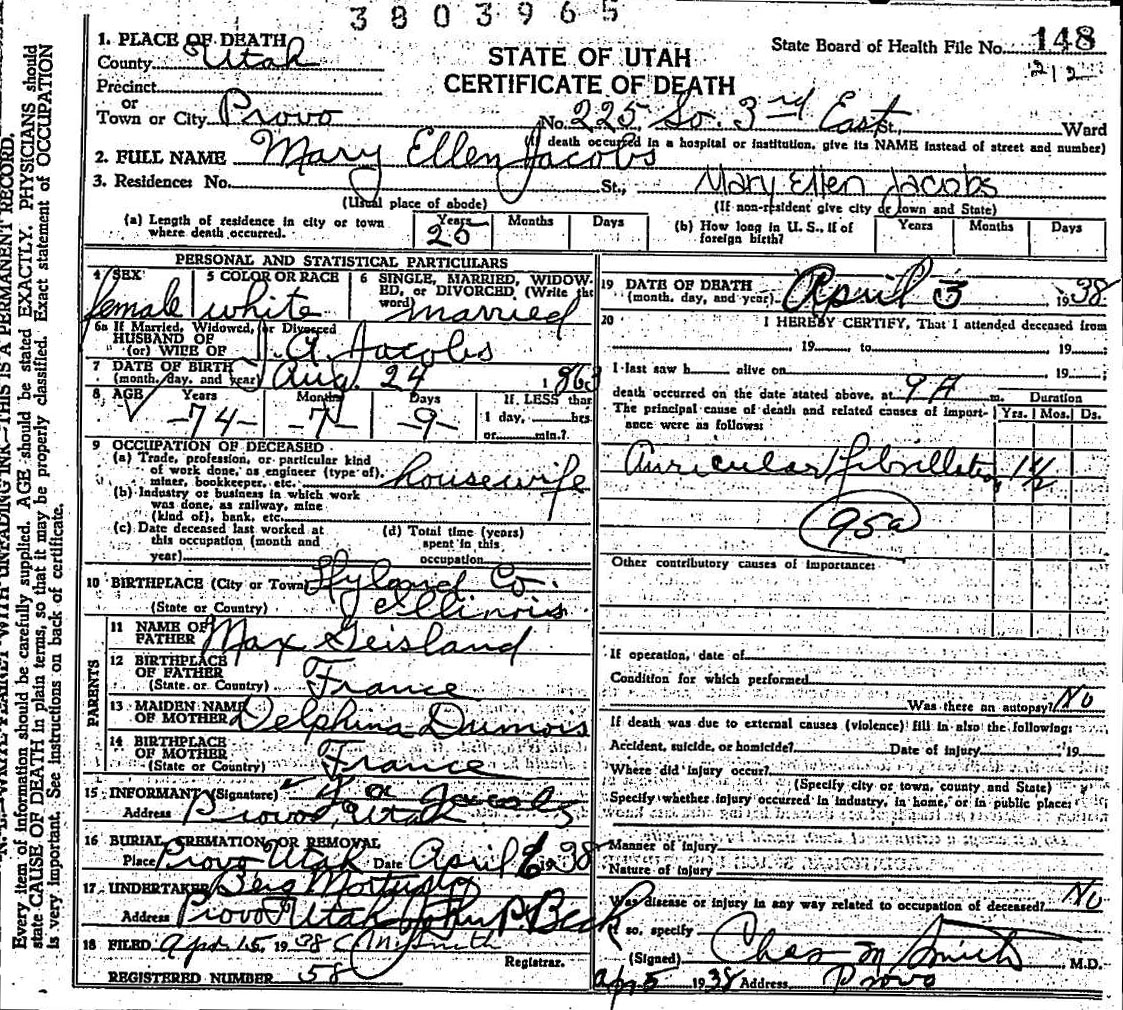 3803965
1. PLACE OF DEATH
County Utah
Precinct
or
Town or City Provo
STATE OF UTAH
CERTIFICATE OF DEATH
State Board of Health File No. 148
212
No. 225 So. 3rd East St., Ward
(If death occurred in a hospital or institution, give its NAME instead of street and number)
2. FULL NAME Mary Ellen Jacobs
3. Residence: No. St., Mary Ellen Jacobs
(Usual place of abode) (If non-resident give city or town and State)
(a) Length of residence in city or town where death occurred. Years 25 Months Days
(b) How long in U. S., if of foreign birth? Years Months Days
PERSONAL AND STATISTICAL PARTICULARS
4 SEX female
5 COLOR OR RACE white
6 SINGLE, MARRIED, WIDOWED, or DIVORCED (Write the word) married
6a If Married, Widowed, or Divorced
HUSBAND OF
(or) WIFE OF J. A. Jacobs
7 DATE OF BIRTH
(month, day, and year) Aug. 24 1863
8 AGE Years -74- Months -7- Days -9- If LESS than
1 day, hrs.
or min.?
9 OCCUPATION OF DECEASED
(a) Trade, profession, or particular kind
of work done, as engineer (type of),
miner, bookkeeper, etc. housewife
(b) Industry or business in which work
was done, as railway, mine
(kind of), bank, etc.
(c) Date deceased last worked at
this occupation (month and
year)
(d) Total time (years)
spent in this
occupation
10 BIRTHPLACE (City or Town) Hyland Co.
(State or Country) Illinois
PARENTS
11 NAME OF
FATHER Max Geisland
12 BIRTHPLACE
OF FATHER
(State or Country) France
13 MAIDEN NAME
OF MOTHER Delphina Dumois
14 BIRTHPLACE
OF MOTHER
(State or Country) France
15 INFORMANT (Signature) Jacobs
Address Provo, Utah
16 BURIAL, CREMATION, OR REMOVAL
Place Provo Utah Date April 6 1938
17 UNDERTAKER Berg Mortuary
Address Provo Utah John P. Beck
18 FILED Apr 15, 1938 Smith
Registrar.
REGISTERED NUMBER 58
19 DATE OF DEATH
(month, day, and year) April 5, 1938
20 I HEREBY CERTIFY, That I attended deceased from
19 , to 19 ;
I last saw h alive on 19 ;
death occurred on the date stated above, at 9 A m.
The principal cause of death and related causes of importance were as follows:
Duration
Yrs. Mos. Ds.
Auricular fibrillation 1 1/2
95a
Other contributory causes of importance:
If operation, date of
Condition for which performed
Was there an autopsy? No
If death was due to external causes (violence) fill in also the following:
Accident, suicide, or homicide? Date of injury 19
Where did injury occur?
(Specify city or town, county and State)
Specify whether injury occurred in industry, in home, or in public place:
Manner of injury
Nature of injury
Was disease or injury in any way related to occupation of deceased? No
If so, specify
(Signed) Chas M Smith M.D.
Apr 5 1938 Address Provo
N. B.—WRITE PLAINLY WITH UNFADING INK—THIS IS A PERMANENT RECORD.
Every item of information should be carefully supplied. AGE should be stated EXACTLY. PHYSICIANS should
state CAUSE OF DEATH in plain terms, so that it may be properly classified. Exact statement of OCCUPATION
is very important. See instructions on back of certificate.